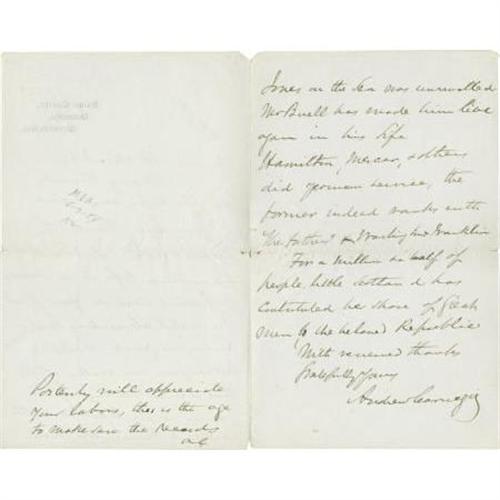 Jones on the Sea was unrivalled
Mr Buell has made him live
again in his Life
Hamilton, Mercer, & others
did yeoman service, the
former indeed ranks with
"the fathers" Washington Franklin
For a million & a half of
people, little Scotland has
contributed her share of Great
men to the beloved Republic
With renewed thanks
Gratefully Yours
Andrew Carnegie
Posterity will appreciate
your labors, this is the age
to make sure the Records
AC